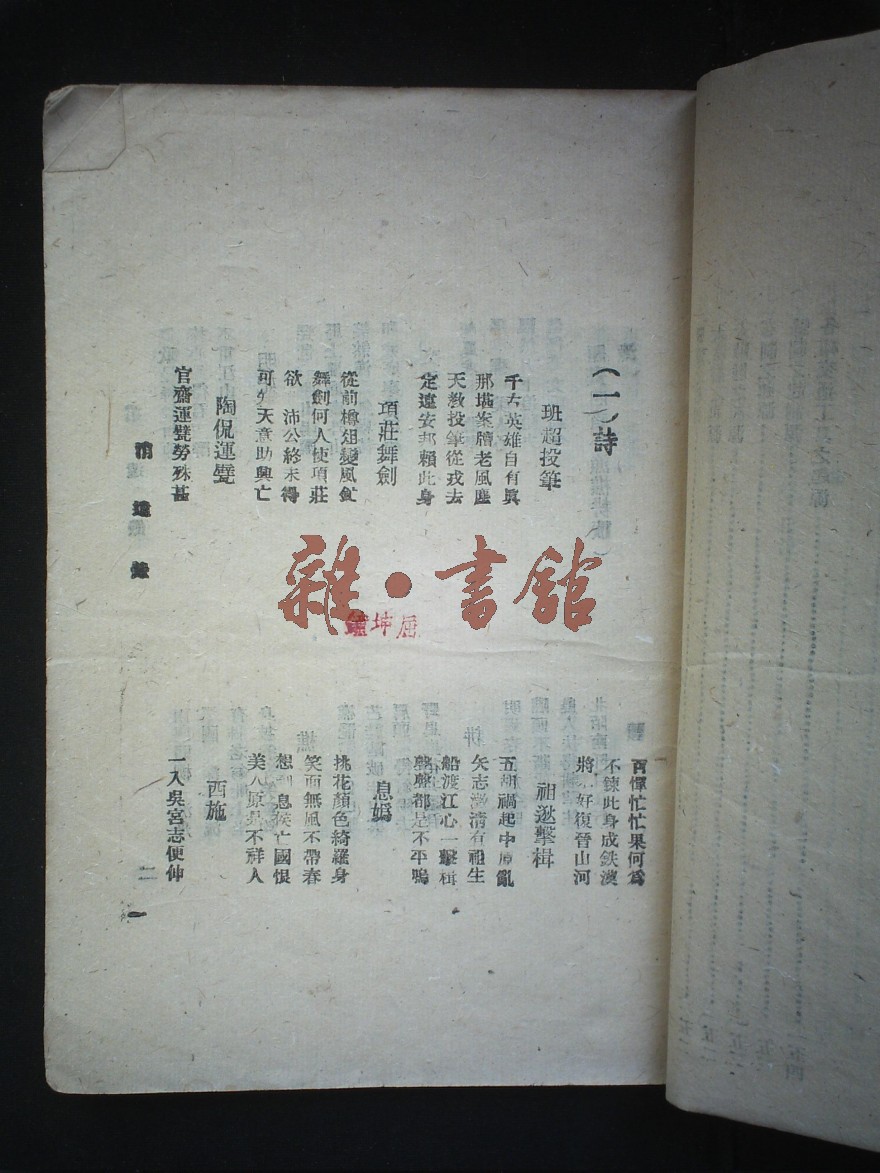 (一)詩
班超投筆
千古英雄自有眞
那堪案牘老風塵
天教投筆從戎去
定遠安邦賴此身
項莊舞劍
從前樽俎變風雲
舞劍何人使項莊
欲 沛公終未得
可知天意助興亡
陶侃運甓
官齋運甓勞殊甚
百憚忙忙果何爲
不鍊此身成鉄漢
將 好復晉山河
祖逖擊楫
五胡禍起中原亂
矢志澄清有祖生
船渡江心一擊楫
聲聲都是不平鳴
息嬀
桃花顏色綺羅身
笑面無風不帶春
想到息侯亡國恨
美人原是不祥人
西施
一入吳宮志便伸
消遣錄
一
雜·書館
屈坤鑪